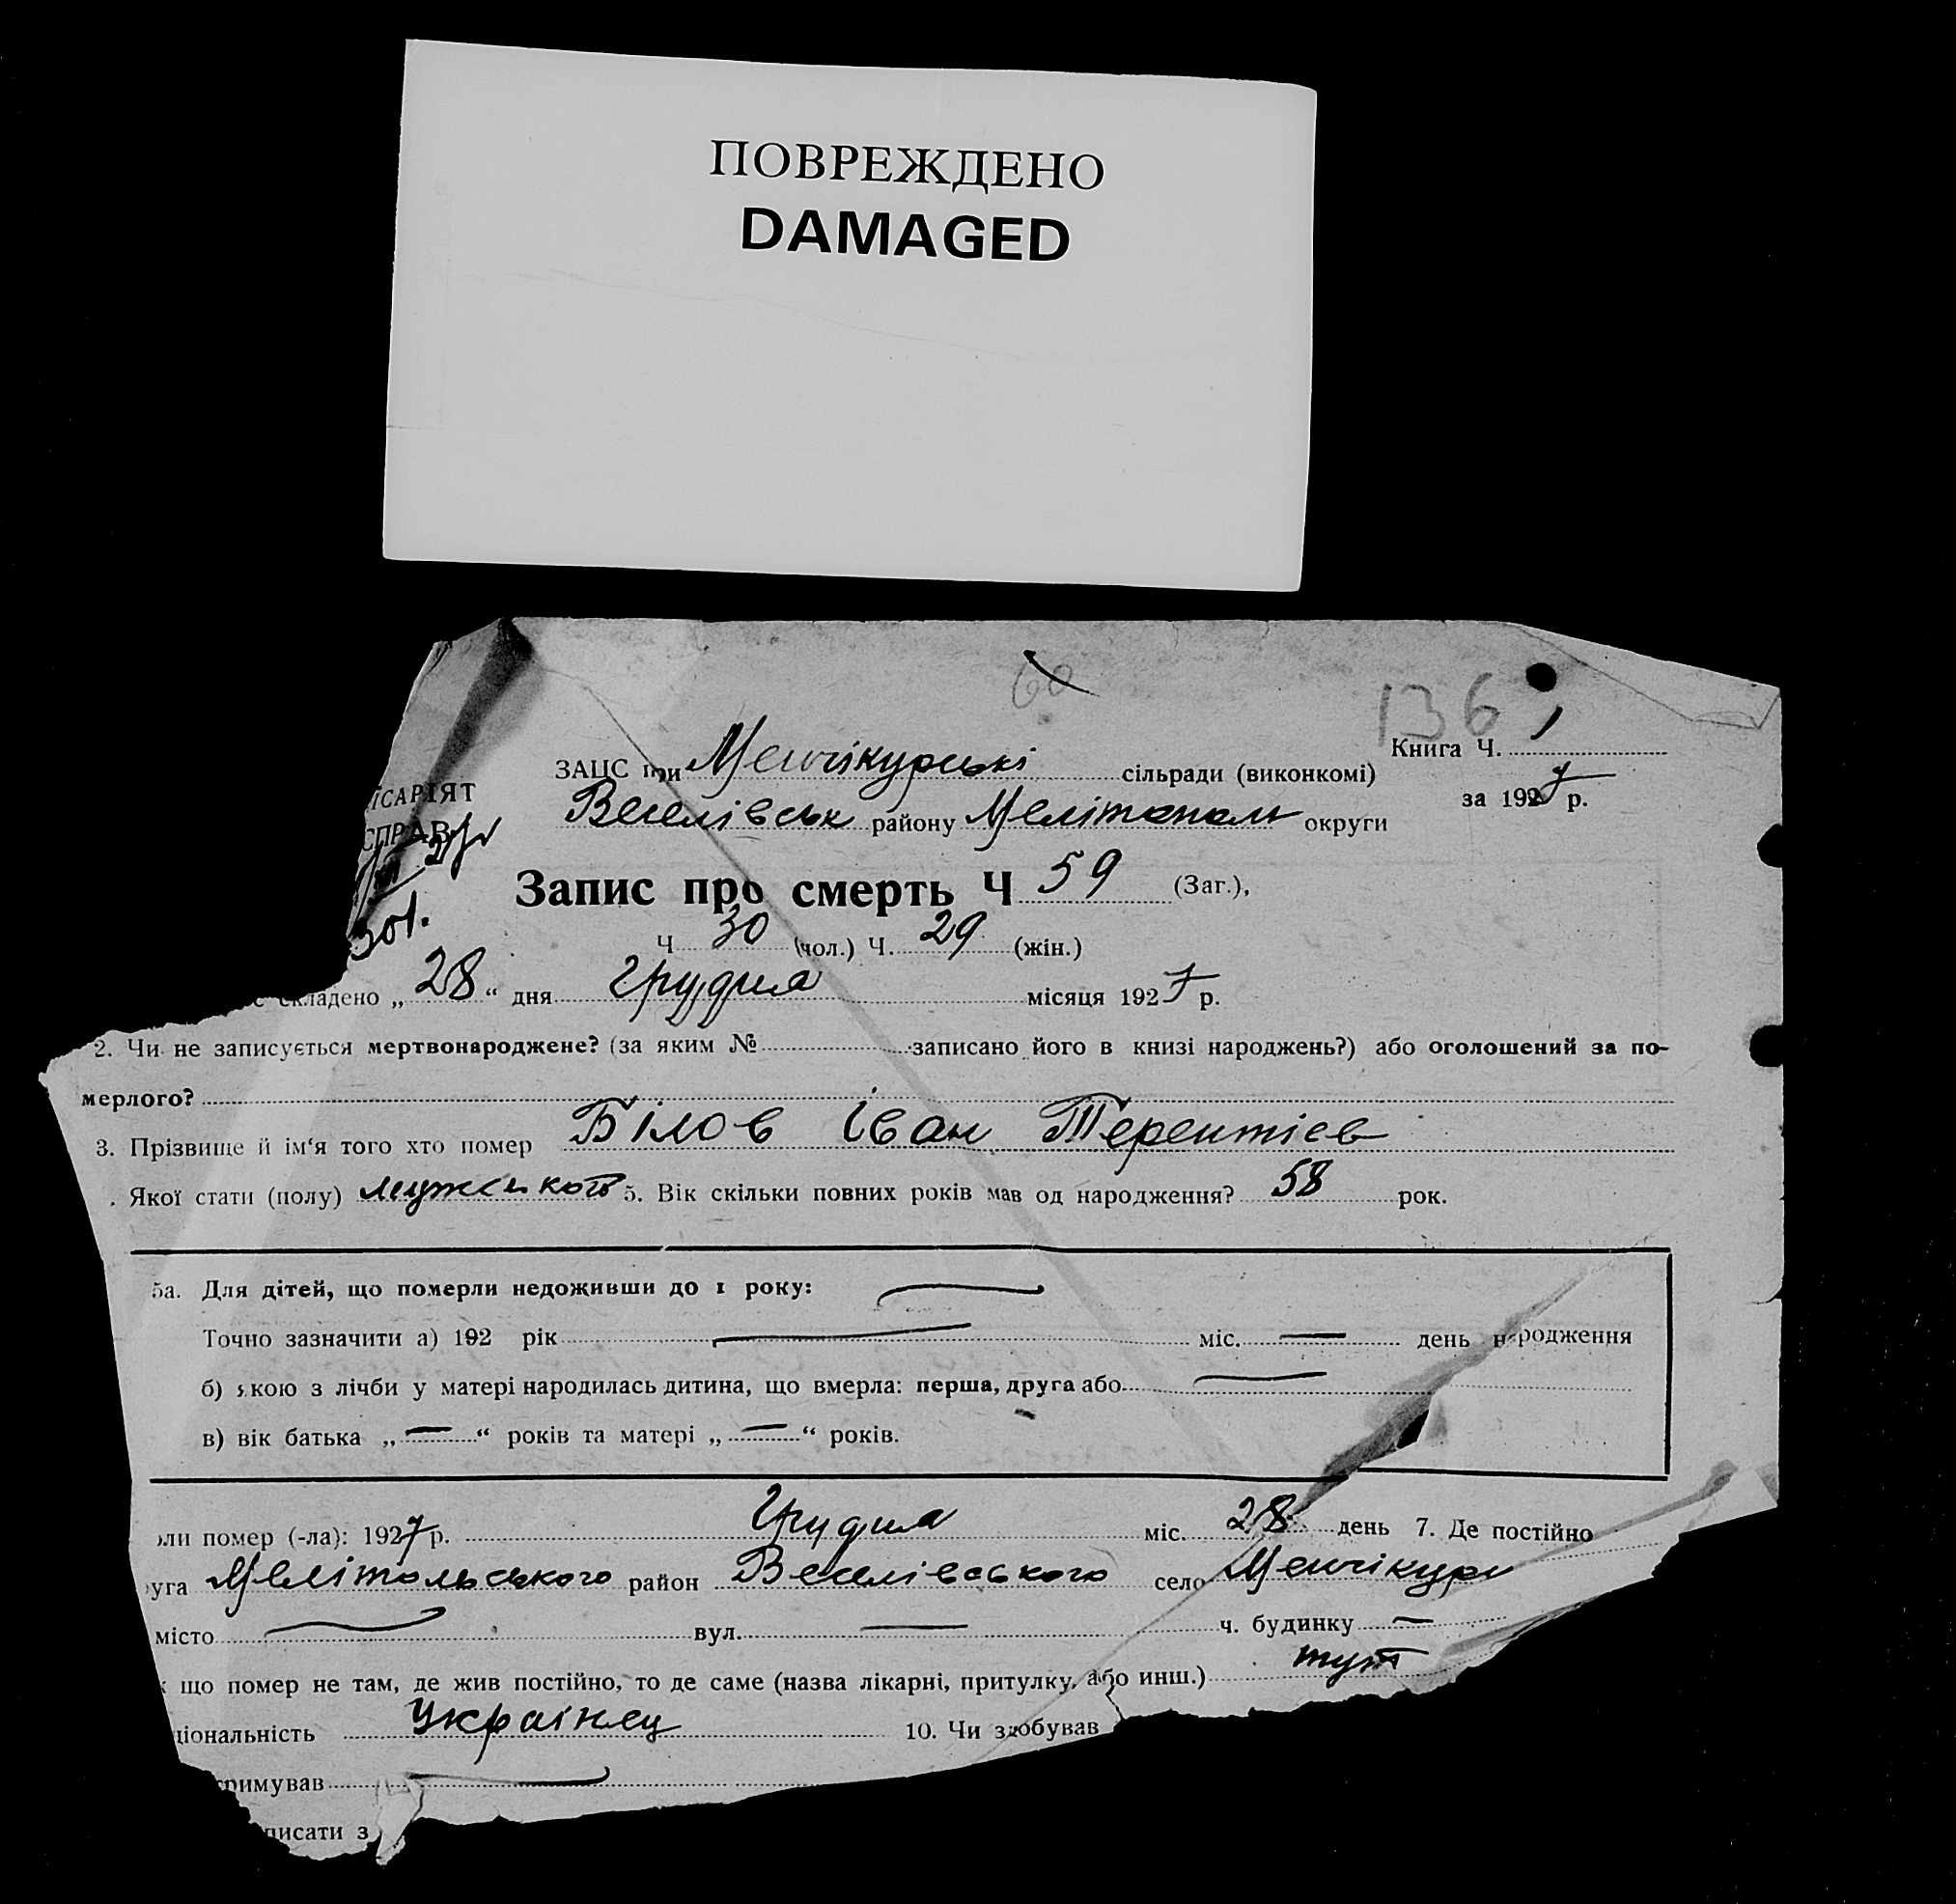 ПОВРЕЖДЕНО
DAMAGED
60
136
Книга Ч. 1
ЗАЦС при Менчікурські сільради (виконкомі)
за 1927 р.
ІСАРІЯТ
СПРАВ
Веселівськ району Мелітополь округи
Запис про смерть Ч 59 (Заг.),
Ч 30 (чол.) Ч. 29 (жін.)
складено „ 28 “ дня Грудня місяця 1927 р.
2. Чи не записується мертвонароджене? (за яким № записано його в книзі народжень?) або оголошений за по-
мерлого?
3. Прізвище й ім‘я того хто помер Білов Іван Терентієв
. Якої стати (полу) мужського 5. Вік скільки повних років мав од народження? 58 рок.
5а. Для дітей, що померли недоживши до 1 року: —
Точно зазначити а) 192 рік — міс. — день народження
б) якою з лічби у матері народилась дитина, що вмерла: перша, друга або —
в) вік батька „ — “ років та матері „ — “ років.
ли помер (-ла): 1927 р. Грудня міс. 28 день 7. Де постійно
уга Мелітольського район Веселівського село Менчікури
місто — вул. — ч. будинку —
що помер не там, де жив постійно, то де саме (назва лікарні, притулку, або инш.) тут
ціональність Українец 10. Чи здобував
римував —
писати з